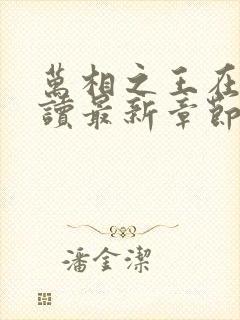 萬相之王在
讀最新章節
潘金潔